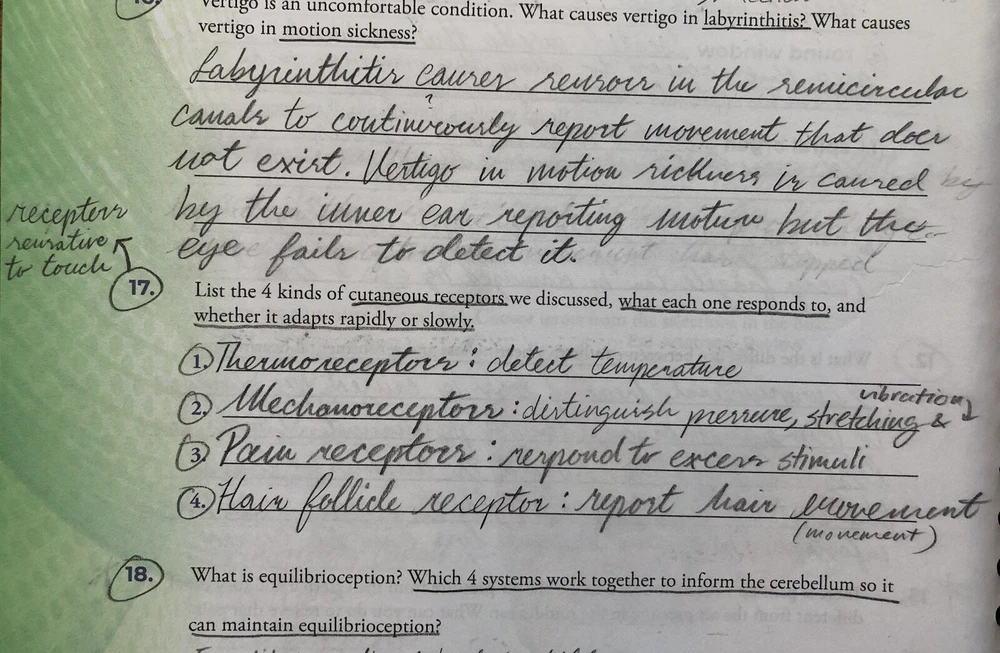 Vertigo is an uncomfortable condition. What causes vertigo in labyrinthitis? What causes
vertigo in motion sickness?
Labyrinthitis causes sensors in the semicircular
?
canals to continuously report movement that does
not exist. Vertigo in motion sickness is caused by
by the inner ear reporting motion but the
eye fails to detect it.
receptors
sensative
to touch
17.
List the 4 kinds of cutaneous receptors we discussed, what each one responds to, and
whether it adapts rapidly or slowly.
1. Thermoreceptors : detect temperature
vibration
2. Mechanoreceptors : distinguish pressure, stretching &
3. Pain receptors : respond to excess stimuli
4. Hair follicle receptor : report hair movement
(movement)
18.
What is equilibrioception? Which 4 systems work together to inform the cerebellum so it
can maintain equilibrioception?